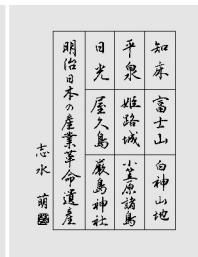 知床
富士山
白神山地
平泉
姫路城
小笠原諸島
日光
屋久島
厳島神社
明治日本の産業革命遺産
志水 萌